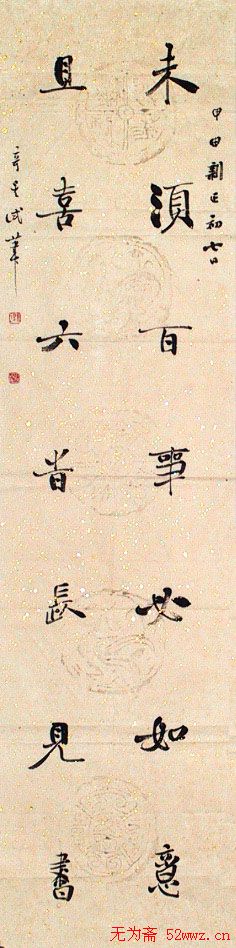 甲申新正初七日
未須百事必如意
且喜六旹長見書
試筆
无为斋 52wwz.cn